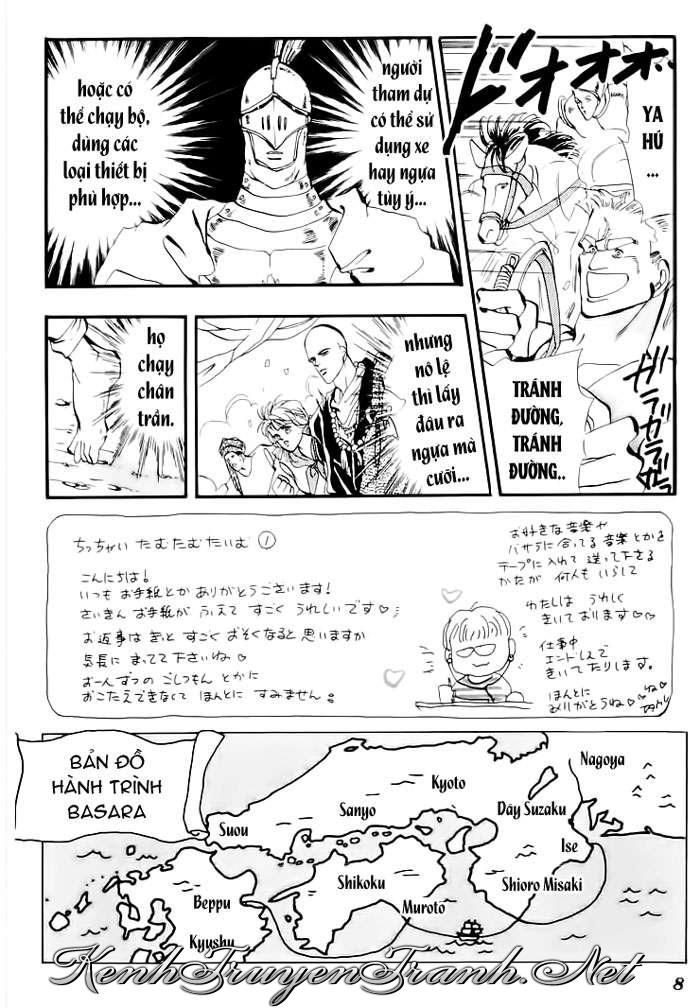 người
tham dự
có thể sử
dụng xe
hay ngựa
tùy ý...
hoặc có
thể chạy bộ,
dùng các
loại thiết bị
phù hợp...
ドオオオ
YA
HÚ
...
TRÁNH
ĐƯỜNG,
TRÁNH
ĐƯỜNG..
ガラガラ
họ
chạy
chân
trần.
nhưng
nô lệ
thì lấy
đâu ra
ngựa mà
cưỡi...
ちっちゃい たむたむたいむ ①
こんにちは!
いつも お手紙とか ありがとうございます!
さいきん お手紙が ふえて すごく うれしいです♡
お返事は きっと すごく おそくなると 思いますが
気長に まってて下さいね♡
お一人ずつの ごしつもん とかに
おこたえできなくて ほんとに すみません。
お好きな音楽や
バサラに合ってる音楽とかを
テープに入れて 送って下さる
かたが 何人も いらして
わたしは うれしく
きいております♡♡
仕事中
エンドレスで
きいてたりします。
ほんとに
ありがとうね♡
BẢN ĐỒ
HÀNH TRÌNH
BASARA
Nagoya
Kyoto
Dãy Suzaku
Sanyo
Suou
Ise
Shikoku
Shioro Misaki
Beppu
Muroto
Kyushu
KenhTruyenTranh.Net
8